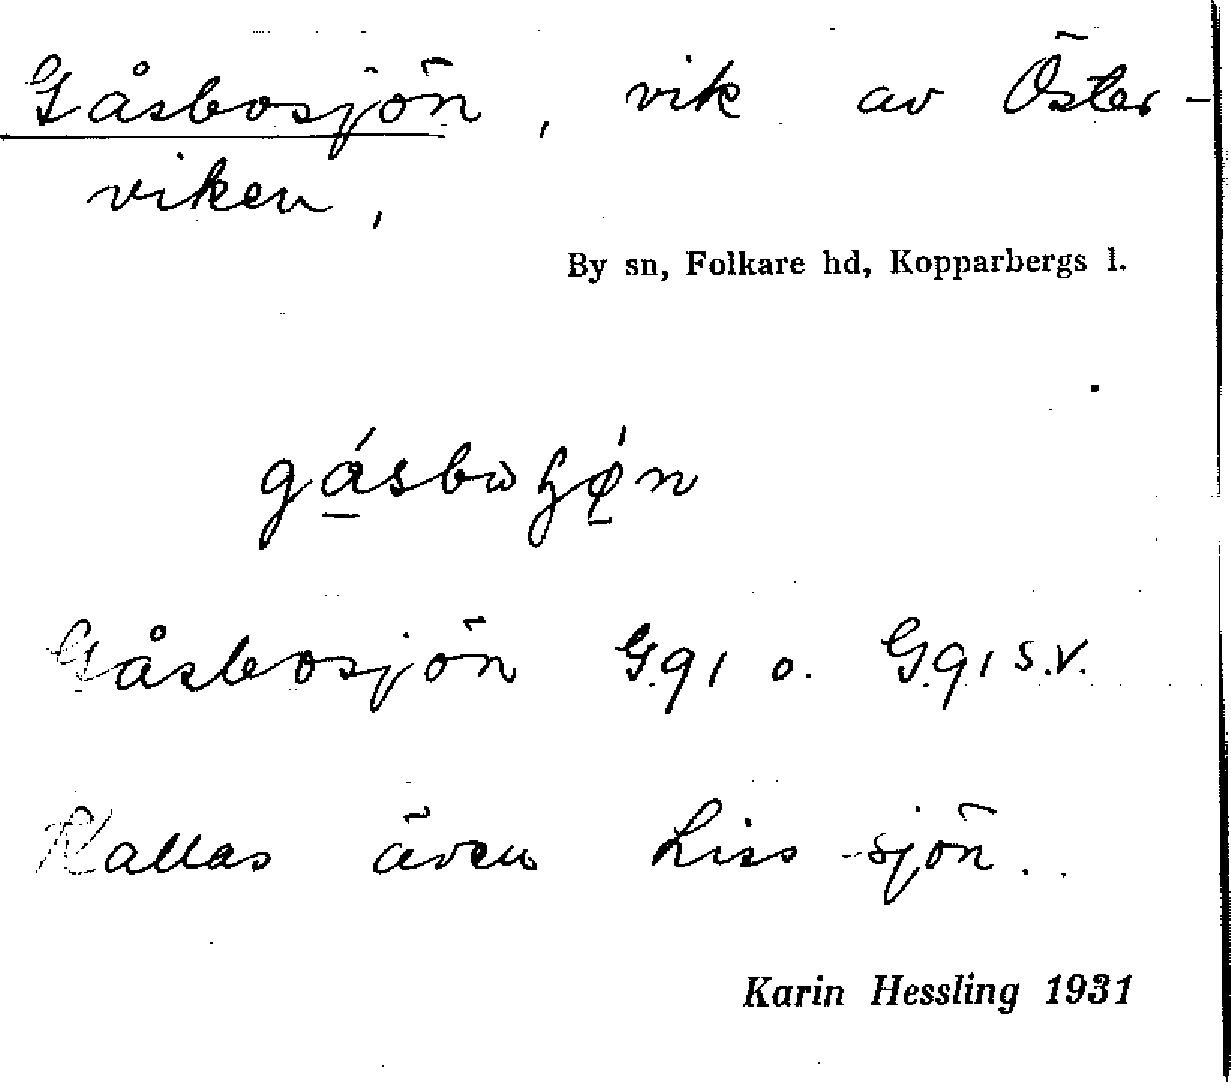 Gåsbosjön, vik av Öster-
viken,
By sn, Folkare hd, Kopparbergs l.
Gåsbosjön G.91 o. G.91 S.V.
Kallas även Liss-sjön.
Karin Hessling 1931